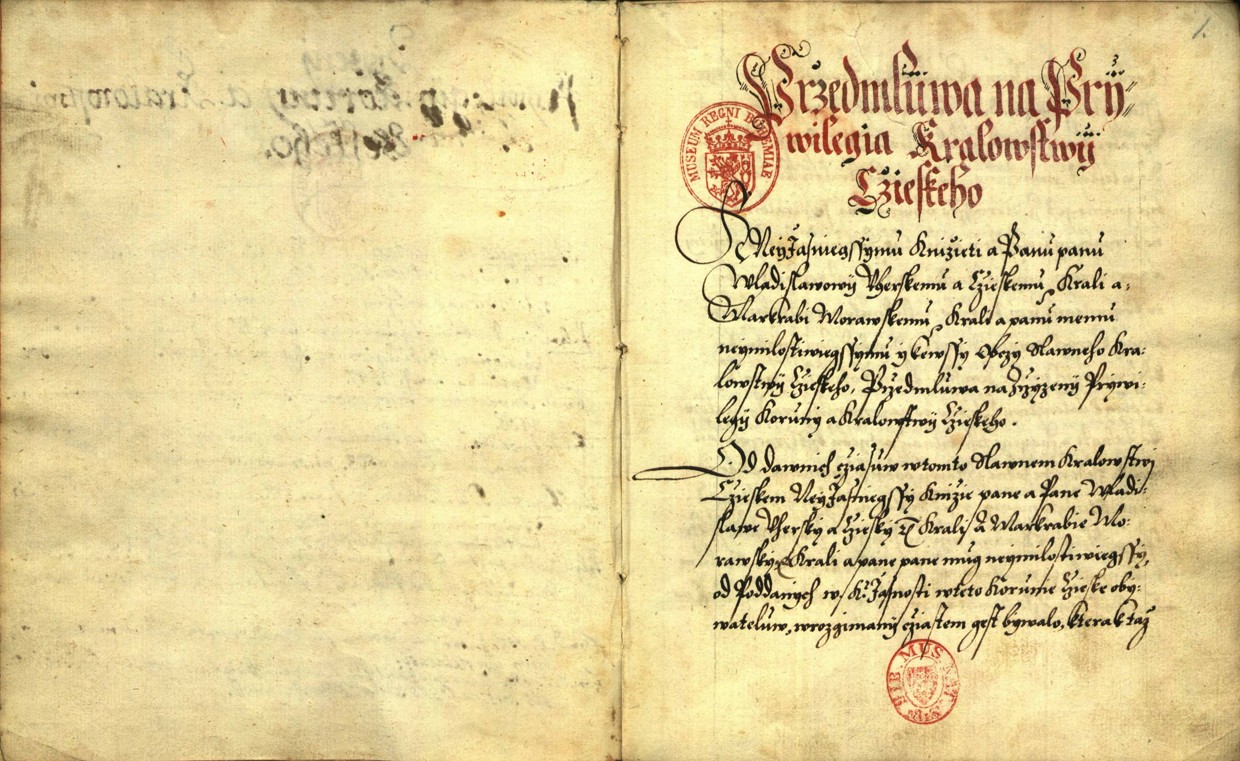 1.
Przedmluwa na Pry=
wilegia Kralowstwij
Cžieskeho
MUSEUM REGNI BOHEMIAE
Neyjasniegssymu Knižieti a Panu panu
Wladislawowij Vherskemu a Cžieskemu Krali a:
Markrabi Morawskemu, Krali a panu memu
neymilostiwiegssymu y kewssy Obczy Slawneho Kra:
lowstwij Cžieskeho, Przedmluwa na Zrzyzenij Prywi:
legij Koruny a Kralowstwij Cžieskeho.
Od dawnich cžiasuw wtomto Slawnem Kralowstwj
Cžieskem Neyjasniegssy Knižie pane a Pane Wladi:
slawe Vhersky a Cžiesky Krali a Markrabie Mo:
rawsky Krali a pane pane mug neymilostiwiegssy,
od Poddanych w K. Jasnosti wteto Korunie Cžieske oby:
wateluw, wrozgimany cžiastem gest bywalo, kterak taž
BIB. MUS. NAT.